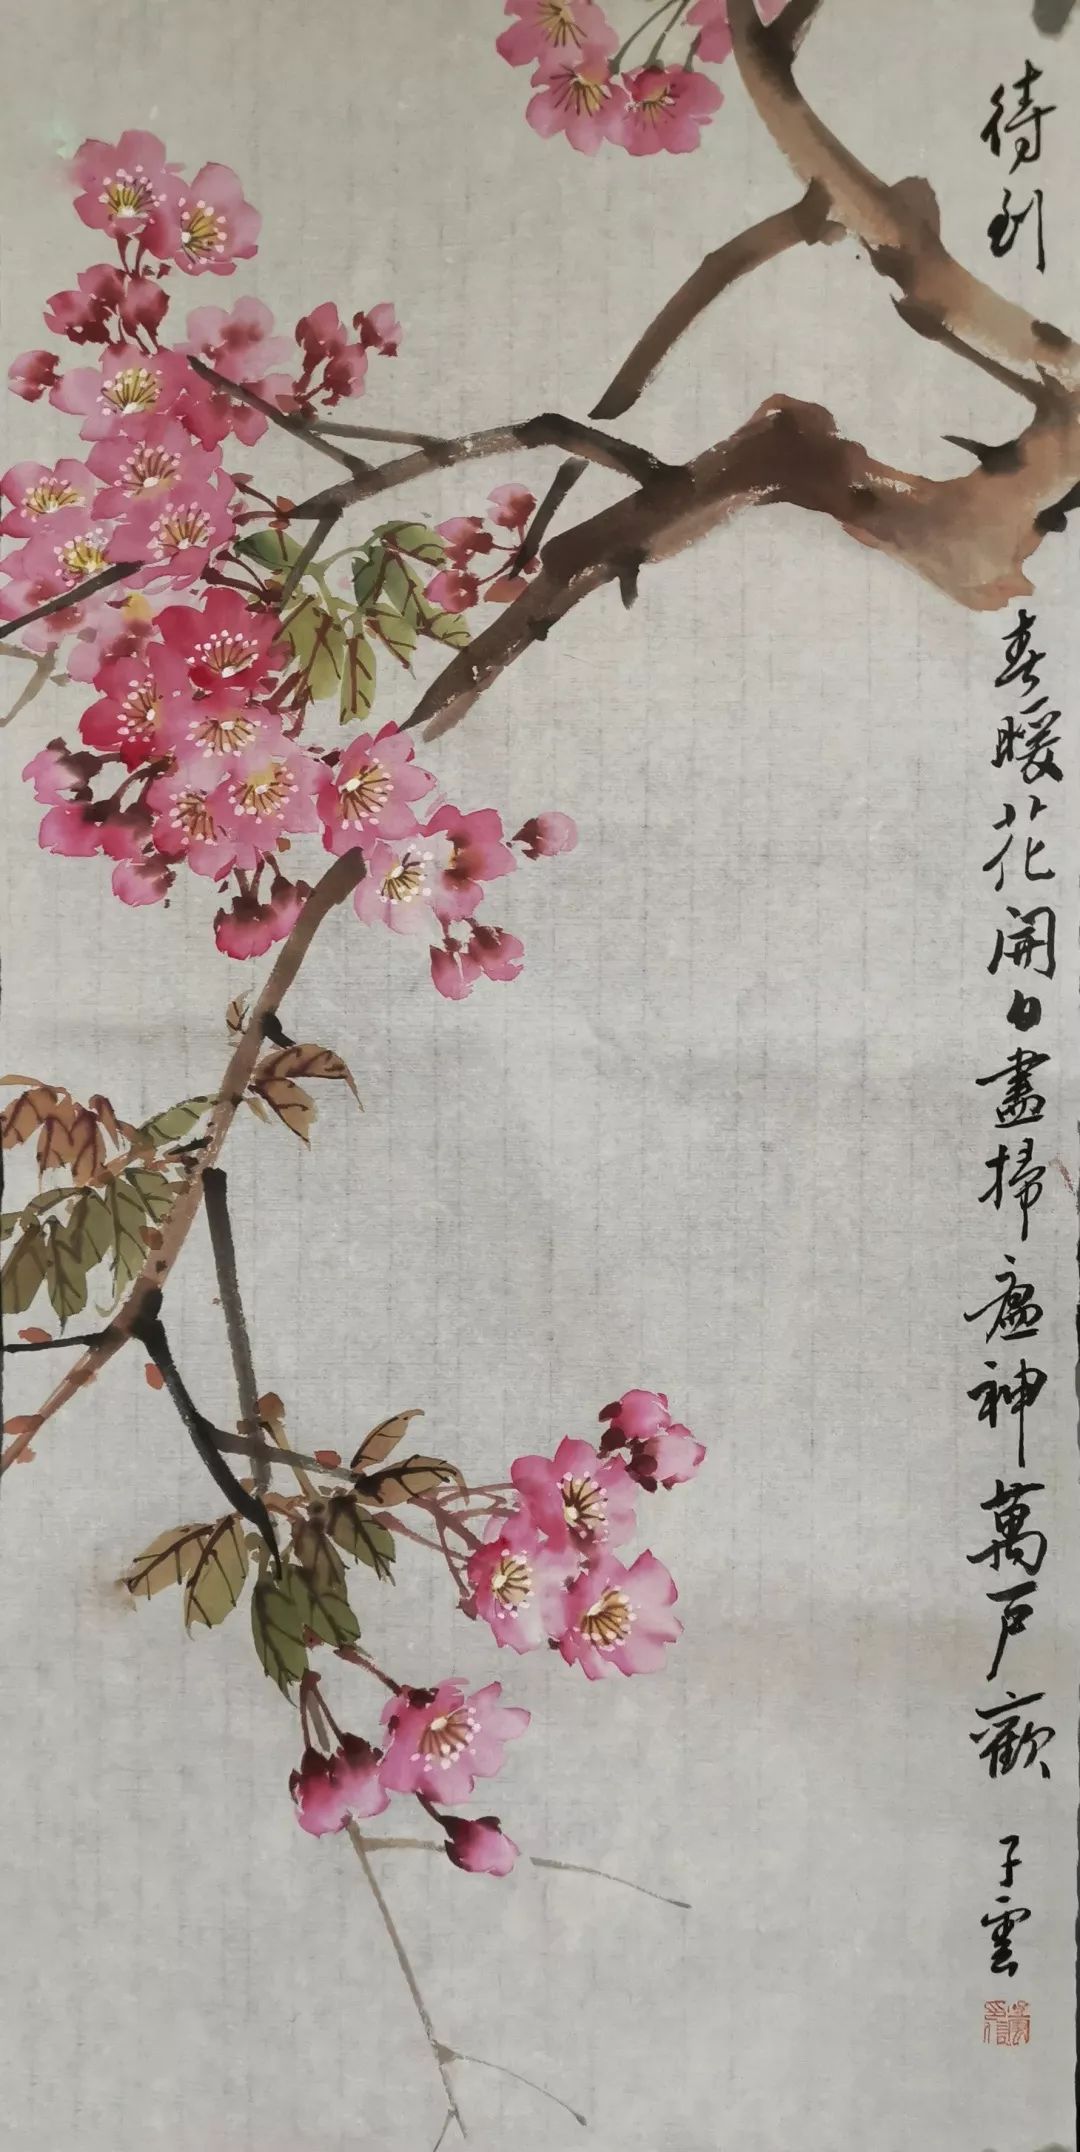 待到春暖花開日盡掃瘟神萬戶歡
子雲